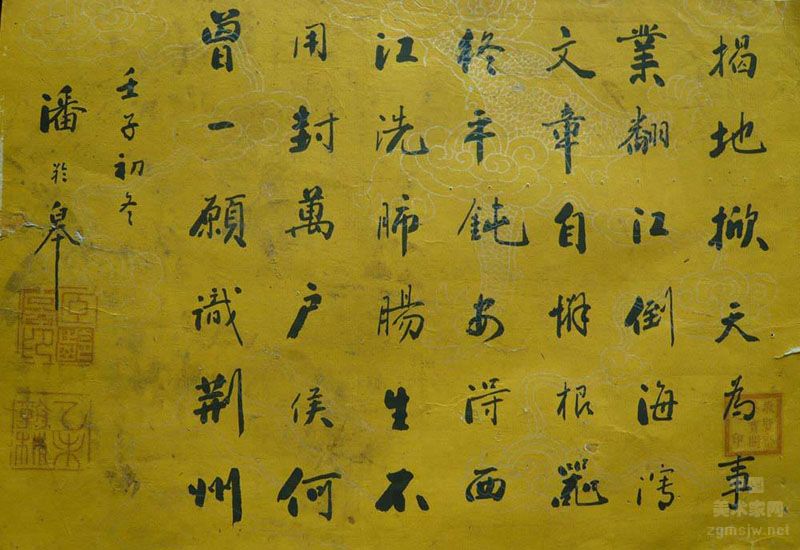 揭地掀天為事
業翻江倒海瀉
文章自慚根器
終平鈍安得西
江洗肺腸生不
用封萬戶侯何
曾一願識荊州
壬子初冬
潘齡皋
乙未翰林
中国
美术家网
zgmsjw.net